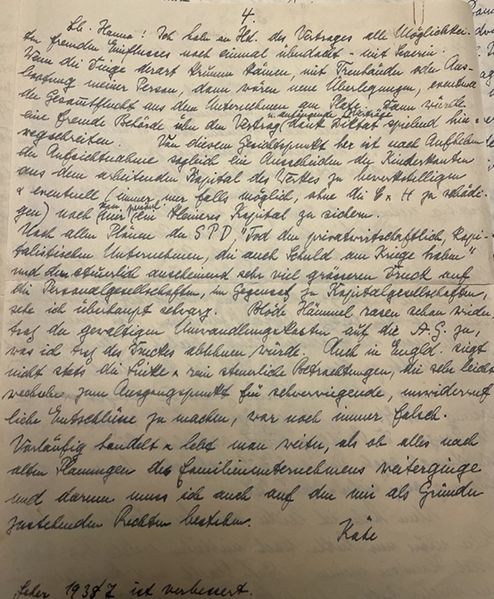 4.
Lb. Hanna! Ich habe an Hd. des Vertrages alle Möglichkei-
ten fremden Einflusses noch einmal überdacht - mit
Wenn die Dinge derart krumm kämen, mit Treuhänder oder Aus-
meiner Person, dann wären neue Überlegungen, eventuell
der Gesamtflucht aus dem Unternehmen am Platz. Dann würde
eine fremde Behörde über den Vertrag u. anliegende Verträge dank Diktat spielend hin-
wegschreiten. Von diesem Gesichtspunkt her ist nach Aufheben
der Aufsichtnahme sogleich ein Ausscheiden der Kinderkonten
aus dem arbeitenden Kapital des Werkes zu bewerkstelligen
& eventuell (immer nur falls möglich, ohne die E & H zu schädi-
gen) noch ein kleineres Kapital zu sichern.
Nach allen Plänen der SPD "Tod den privatwirtschaftlich, kapi-
talistischen Unternehmen, die auch Schuld am Kriege haben"
und dem steuerlich anscheinend sehr viel grösseren Druck auf
die Personalgesellschaften, im Gegensatz zu Kapitalgesellschaften,
sehe ich überhaupt schwarz. Blöde Hammel rasen schon wieder
trotz der gewaltigen Umwandlungskosten auf die A.G. zu,
was ich trotz des Druckes ablehnen würde. Auch in Engld. siegt
nicht stets die Linke & rein steuerliche Betrachtungen, die sehr leicht
wechseln zum Ausgangspunkt für schwerwiegende, unwiderruf-
liche Entschlüsse zu machen, war noch immer falsch.
Vorläufig handelt & lebt man weiter, als ob alles nach
alten Planungen des Familienunternehmens weiterginge
und darum muss ich auch auf den mir als Gründer
zustehenden Rechten bestehen.
Käte
1938/7 ist verbessert.